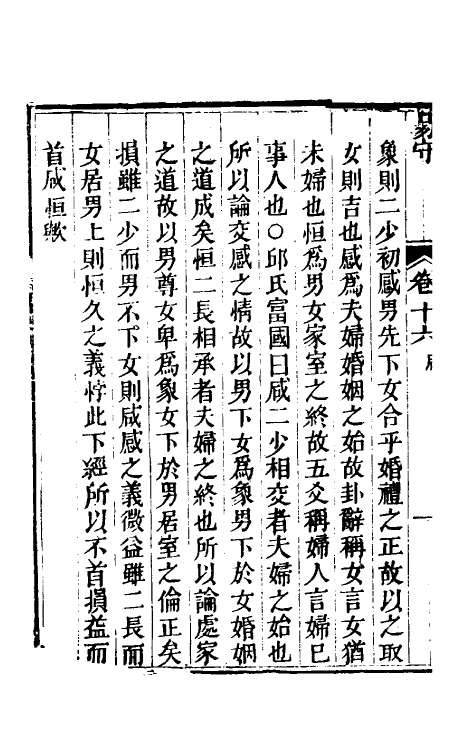 卷十六
象則二少初感男先下女合乎婚禮之正故以之取
女則吉也咸爲夫婦婚姻之始故卦辭稱女言女猶
未婦也恒爲男女家室之終故五爻稱婦人言婦已
事人也○邱氏富國曰咸二少相交者夫婦之始也
所以論交感之情故以男下女爲象男下於女婚姻
之道成矣恒二長相承者夫婦之終也所以論處家
之道故以男尊女卑爲象女下於男居室之倫正矣
損雖二少而男不下女則咸感之義微益雖二長而
女居男上則恒久之義悖此下經所以不首損益而
首咸恒歟